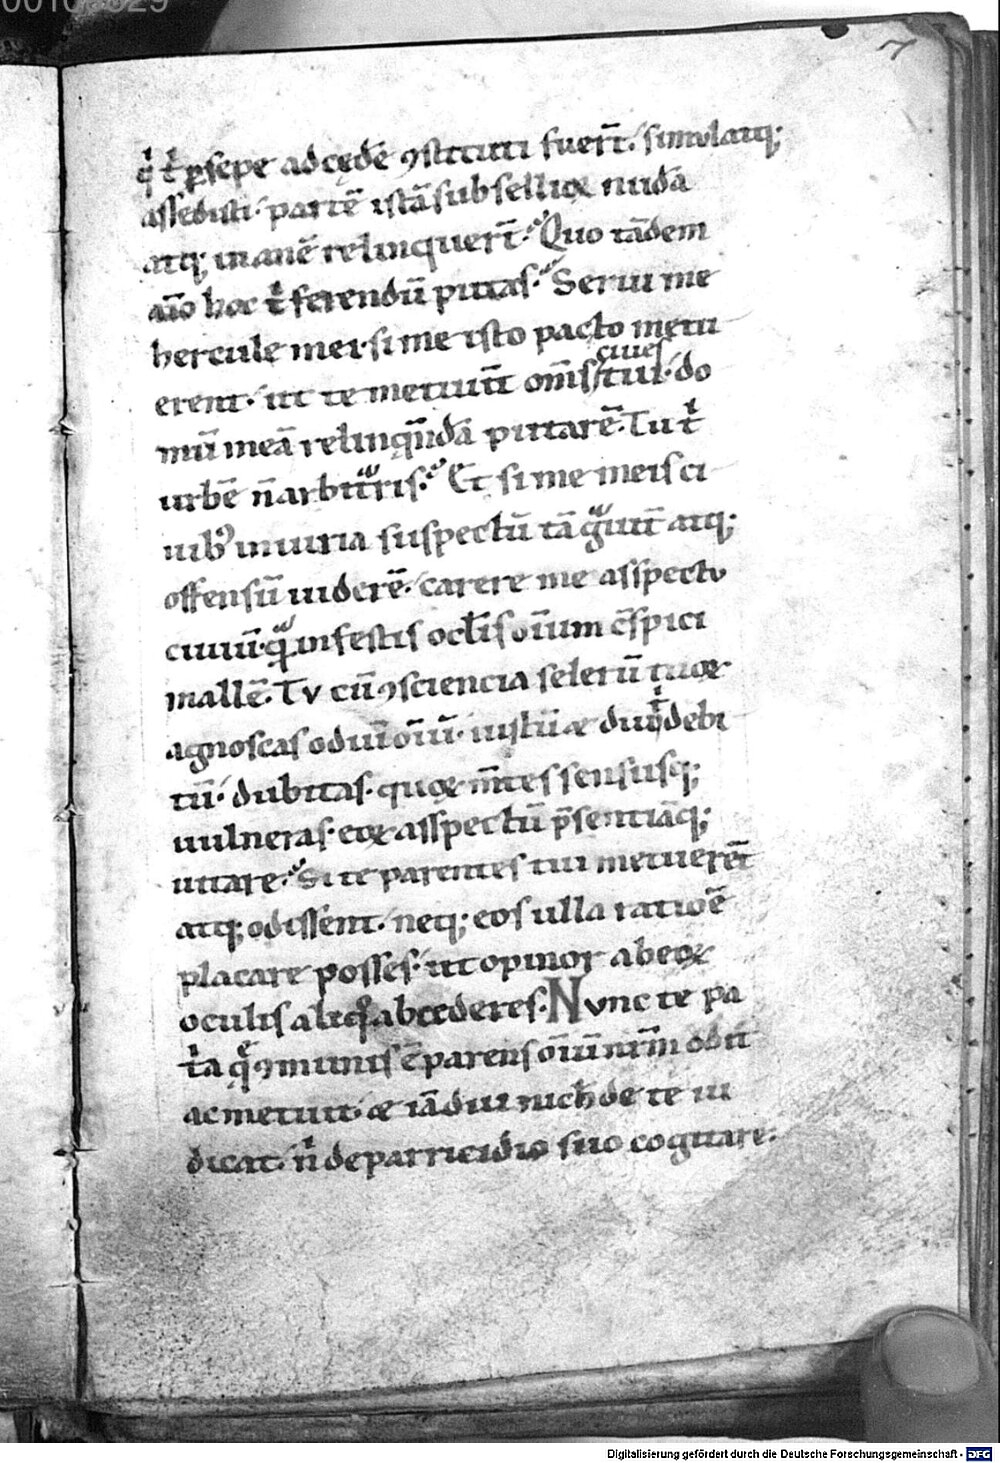 00100829
7
q' t' p̱sepe ad cędē ꝯstituti fuer̄t. simulatq;
assedisti. partē istā subsellioꝝ nudā
atq; inanē relinquer̄t. Quo tādem
aīo hoc t' ferendū putas. Serui me
hercule mei. si me isto pacto metu
erent. ut te metuūt om̄s ciues tui. do
mū meā relinquēdā putarē. Tu t'
urbē n̄ arbitraris. Et si me meis ci
uibꝰ iniuria suspectū tā grauit' atq;
offensū uiderē. carere me asspectu
ciuiū. quā infestis oclis oīum c̄spici
mallē. Tv cū ꝯsciencia selerū tuoꝝ
agnoscas odiū oīū. iustū æ diu t' debi
tū. dubitas. quoꝝ m̄tes sensusq;
uulneras. eoꝝ asspectū p̄sentiāq;
uitare. Si te parentes tui metuerēt
atq; odissent. neq; eos ulla ratioē
placare posses. ut opinor ab eoꝝ
oculis aliquo abcederes. Nvnc te pa
t'a quę ꝯmunis ē parens oīū nr̄m odit
ac metuit. æ iā diu nichil de te iu
dicat. n' de parricidio suo cogitare.
Digitalisierung gefördert durch die Deutsche Forschungsgemeinschaft - DFG